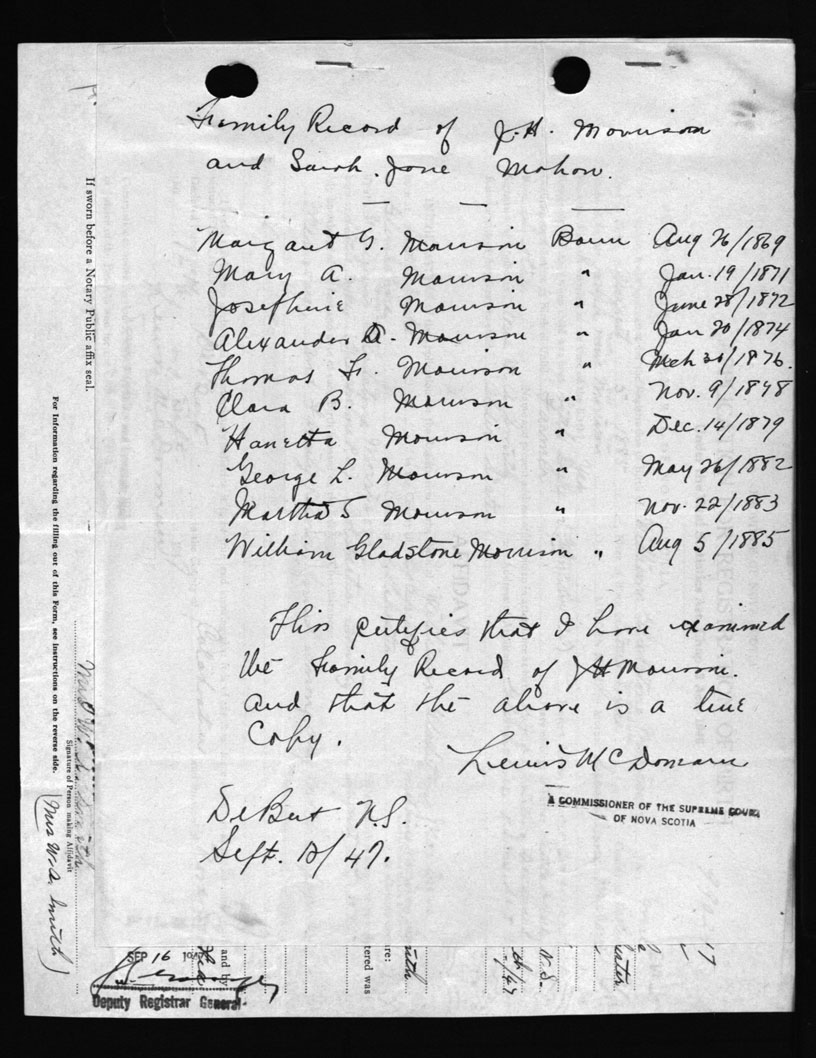 Family Record of J. H. Morrison
and Sarah Jane Mahon.
Margaret G. Morrison Born Aug 26/1869
Mary A. Morrison " Jan. 19/1871
Josephine Morrison " June 28/1872
Alexander D. Morrison " Jan 20/1874
Thomas F. Morrison " Mch 30/1876.
Clara B. Morrison " Nov. 9/1878
Hanetta Morrison " Dec. 14/1879
George L. Morrison " May 26/1882
Martha S Morrison " Nov. 22/1883
William Gladstone Morrison " Aug 5/1885
This certifies that I have examined
the Family Record of J H Morrison.
and that the above is a true
Copy.
A COMMISSIONER OF THE SUPREME COURT
OF NOVA SCOTIA
DeBert N.S.
Sept. /47.
If sworn before a Notary Public affix seal.
For Information regarding the filling out of this Form, see instructions on the reverse side.
Signature of Person making Affidavit
(Mrs W. A. Smith)
SEP 16
Deputy Registrar General
and by
tered was
N.S.
/47
17